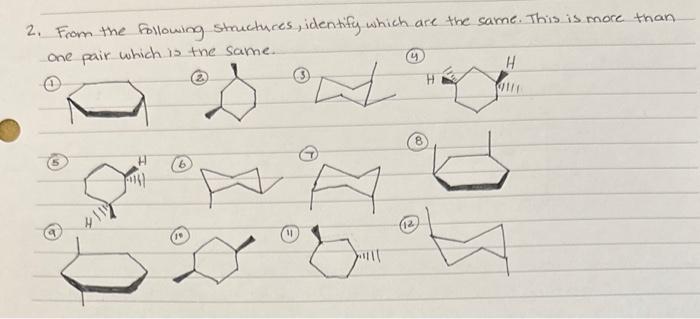 2. From the following structures, identify which are the same. This is more than
one pair which is the same.
1 2 3 4 H
H
5 H 6 7 8
H
9 10 11 12